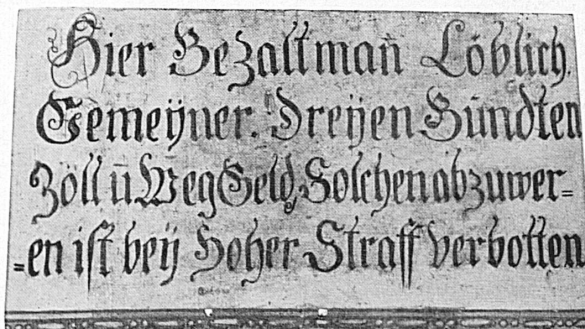 Hier Bezalt man̄ Löblich.
Gemeÿner. Dreÿen Bündten
Zöll ū Weg Geld, Solchen abzuwer=
=en ist beÿ Hoher Straff verbotten